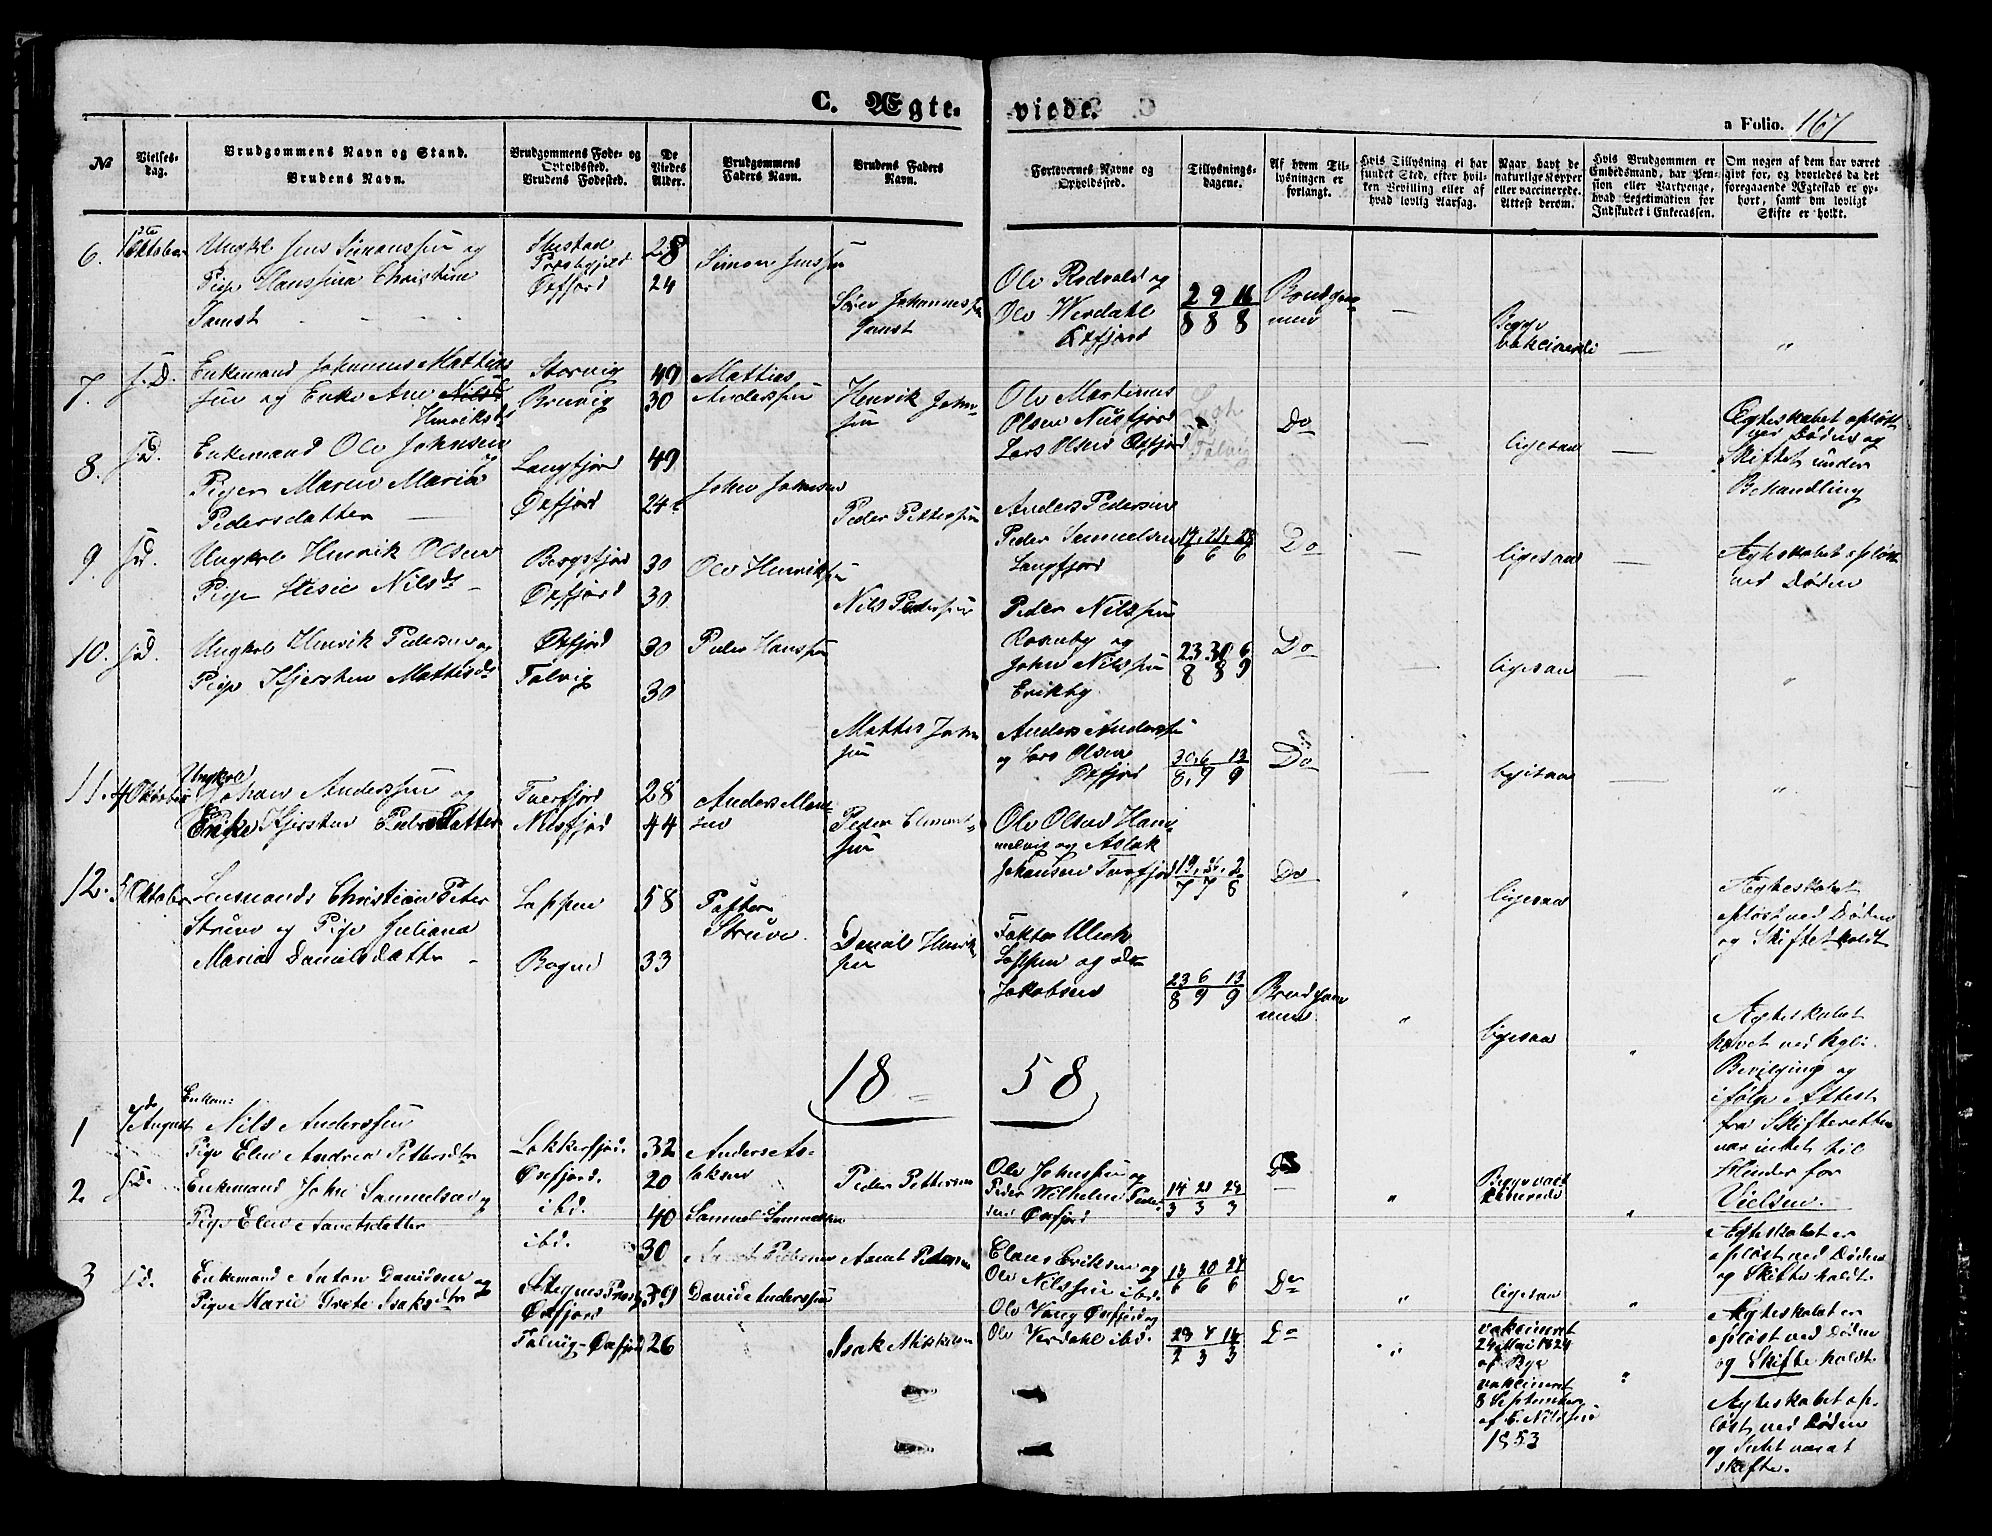 C. Ægte-
viede.
a Folio. 167
No
Vielses-
dag.
Brudgommens Navn og Stand.
Brudens Navn.
Brudgommens Føde- og
Opholdsted.
Brudens Fødested.
De
Viedes
Alder.
Brudgommens
Faders Navn.
Brudens Faders
Navn.
Forlovernes Navne og
Opholdsted.
Tillysnings-
dagene.
Af hvem Til-
lysningen er
forlangt.
Hvis Tillysning ei har
fundet Sted, efter hvil-
ken Bevilling eller af
hvad lovlig Aarsag.
Naar havt de
naturlige Kopper
eller vaccinerede.
Attest derom.
Hvis Brudgommen er
Embedsmand, har Pen-
sion eller Vartpenge,
hvad Legitimation for
Indskudet i Enkecassen.
Om nogen af dem har været
givt før, og hvorledes da det
foregaaende Ægteskab er op-
hørt, samt om lovligt
Skifte er holdt.
6. 1ste Oktober
Ungkrl Jens Simonssen og
Pige Hanssina Christine
Samst
Ibestad
Præstegjeld
Øxfjord
28
24
Simon Jenssen
Sører Johannessen
Samst
Ole Rodvald og
Ole Werdahl
Øxfjord
2 9 16
8 8 8
Brudgom-
men
Begge
vakcinerede
7. s.D.
Enkemand Johannes Mathias
sen og Enke Ane Nilsd
Henriksd
Storvig
Bruvig
49
30
Mattias
Anderssen
Henrik John-
sen
Ole Martinus
Olsen Nusfjord
Lars Olsen Øxfjord
Lyst
Talvig
Do
ligesaa
Ægteskabet opløst
ved Døden og
Skiftet under
Behandling
8. s.d.
Enkemand Ole Johnsen
Pigen Maren Maria
Pedersdatter
Langfjord
Øxfjord
49
24
John Johnsen
Peder Pettersen
Anders Pedersen
Peder Samuelsen
Langfjord
14. 21. 28
6 6 6
Do
ligesaa
Ægteskabet opløst
ved Døden
9. s.d.
Ungkrl Henrik Olsen
Pige Hesie Nilsds
Bergsfjord
Øxfjord
30
30
Ole Henriksen
Nils Pederssen
Peder Nilssen
og
John Nilssen
Erikby
23. 30 6
8 8 9
Do
ligesaa
10. s.d.
Ungkrl Henrik Pedersen og
Pige Kjersten Mattisds
Øxfjord
Talvig
30
30
Peder Hanssen
Mattis John
sen
Anders Anderssen
og Lars Olsen
Øxfjord
30. 6 13
8. 9 9
Do
ligesaa
11. 4 Oktober
Ungkrl
Johan Anderssen og
Enke Kjersten Pedersdatter
Tverfjord
Nusfjord
28
44
Anders Man-
sen
Peder Clemet-
sen
Ole Olsen Ham-
nelvig og Aslak
Johansen Tverfjord
19. 26. 2
7 7 8
Do
ligesaa
Ægteskabet
opløst ved Døden
og Skiftet holdt
12. 5 Oktober
Lensmands Christian Peter
Struve og Pige Juliana
Maria Danielsdatter
Loppen
Bogen
58
33
Petter
Struve.
Daniel Henrik
sen
Faktor Ulich
Loppen og
Jakobsen
23 6 13
8 9 9
Brudgom
men
ligesaa
Ægteskabet
hævet ved Kgl.
Bevilging og
ifølge Attest
fra Skifteretten
var intet til
Hinder for
Vielsen.
18
58
1 7de August
Enkem:
Nils Anderssen
Pige Elen Andrea Pettersdtr
Lokkerfjord.
Øxfjord.
32
20
Anders As-
laksen
Peder Pettersen
Ole Johnssen og
Peder Wilhelm Peder
sen Øxfjord
14 21 28
3 3 3
Do
Begge vac
cinerede
Ægteskabet er
opløst ved Døden
og Skifte holdt
2 s.d.
Enkemand John Samuelsen og
Pige Elen Amtsdatter
ibd.
ibd.
40
30
Samuel Samuelsen
Amt Pedersen
Amt Pedersen
Claus Eriksen og
Ole Nilssen ibd.
13 20 27
6 6 6
Do
ligesaa
Ægteskabet er
opløst ved Døden
og Skifte holdt
3 s.d.
Enkemand Anton Davidsen og
Pige Marie Grete Isaksdtr
Øxfjord
Talvig-Øxfjord
39
26
David Anderssen
Isak Mikkelsen
Ole Vang Øxfjord og
Ole Verdahl ibd.
Do
vakcineret
24 Mai 1824
af Bye
vakcineret
8 September
af E. Nilssen
1853
Ægteskabet op-
løst ved Døden
og Intet var at
skifte.